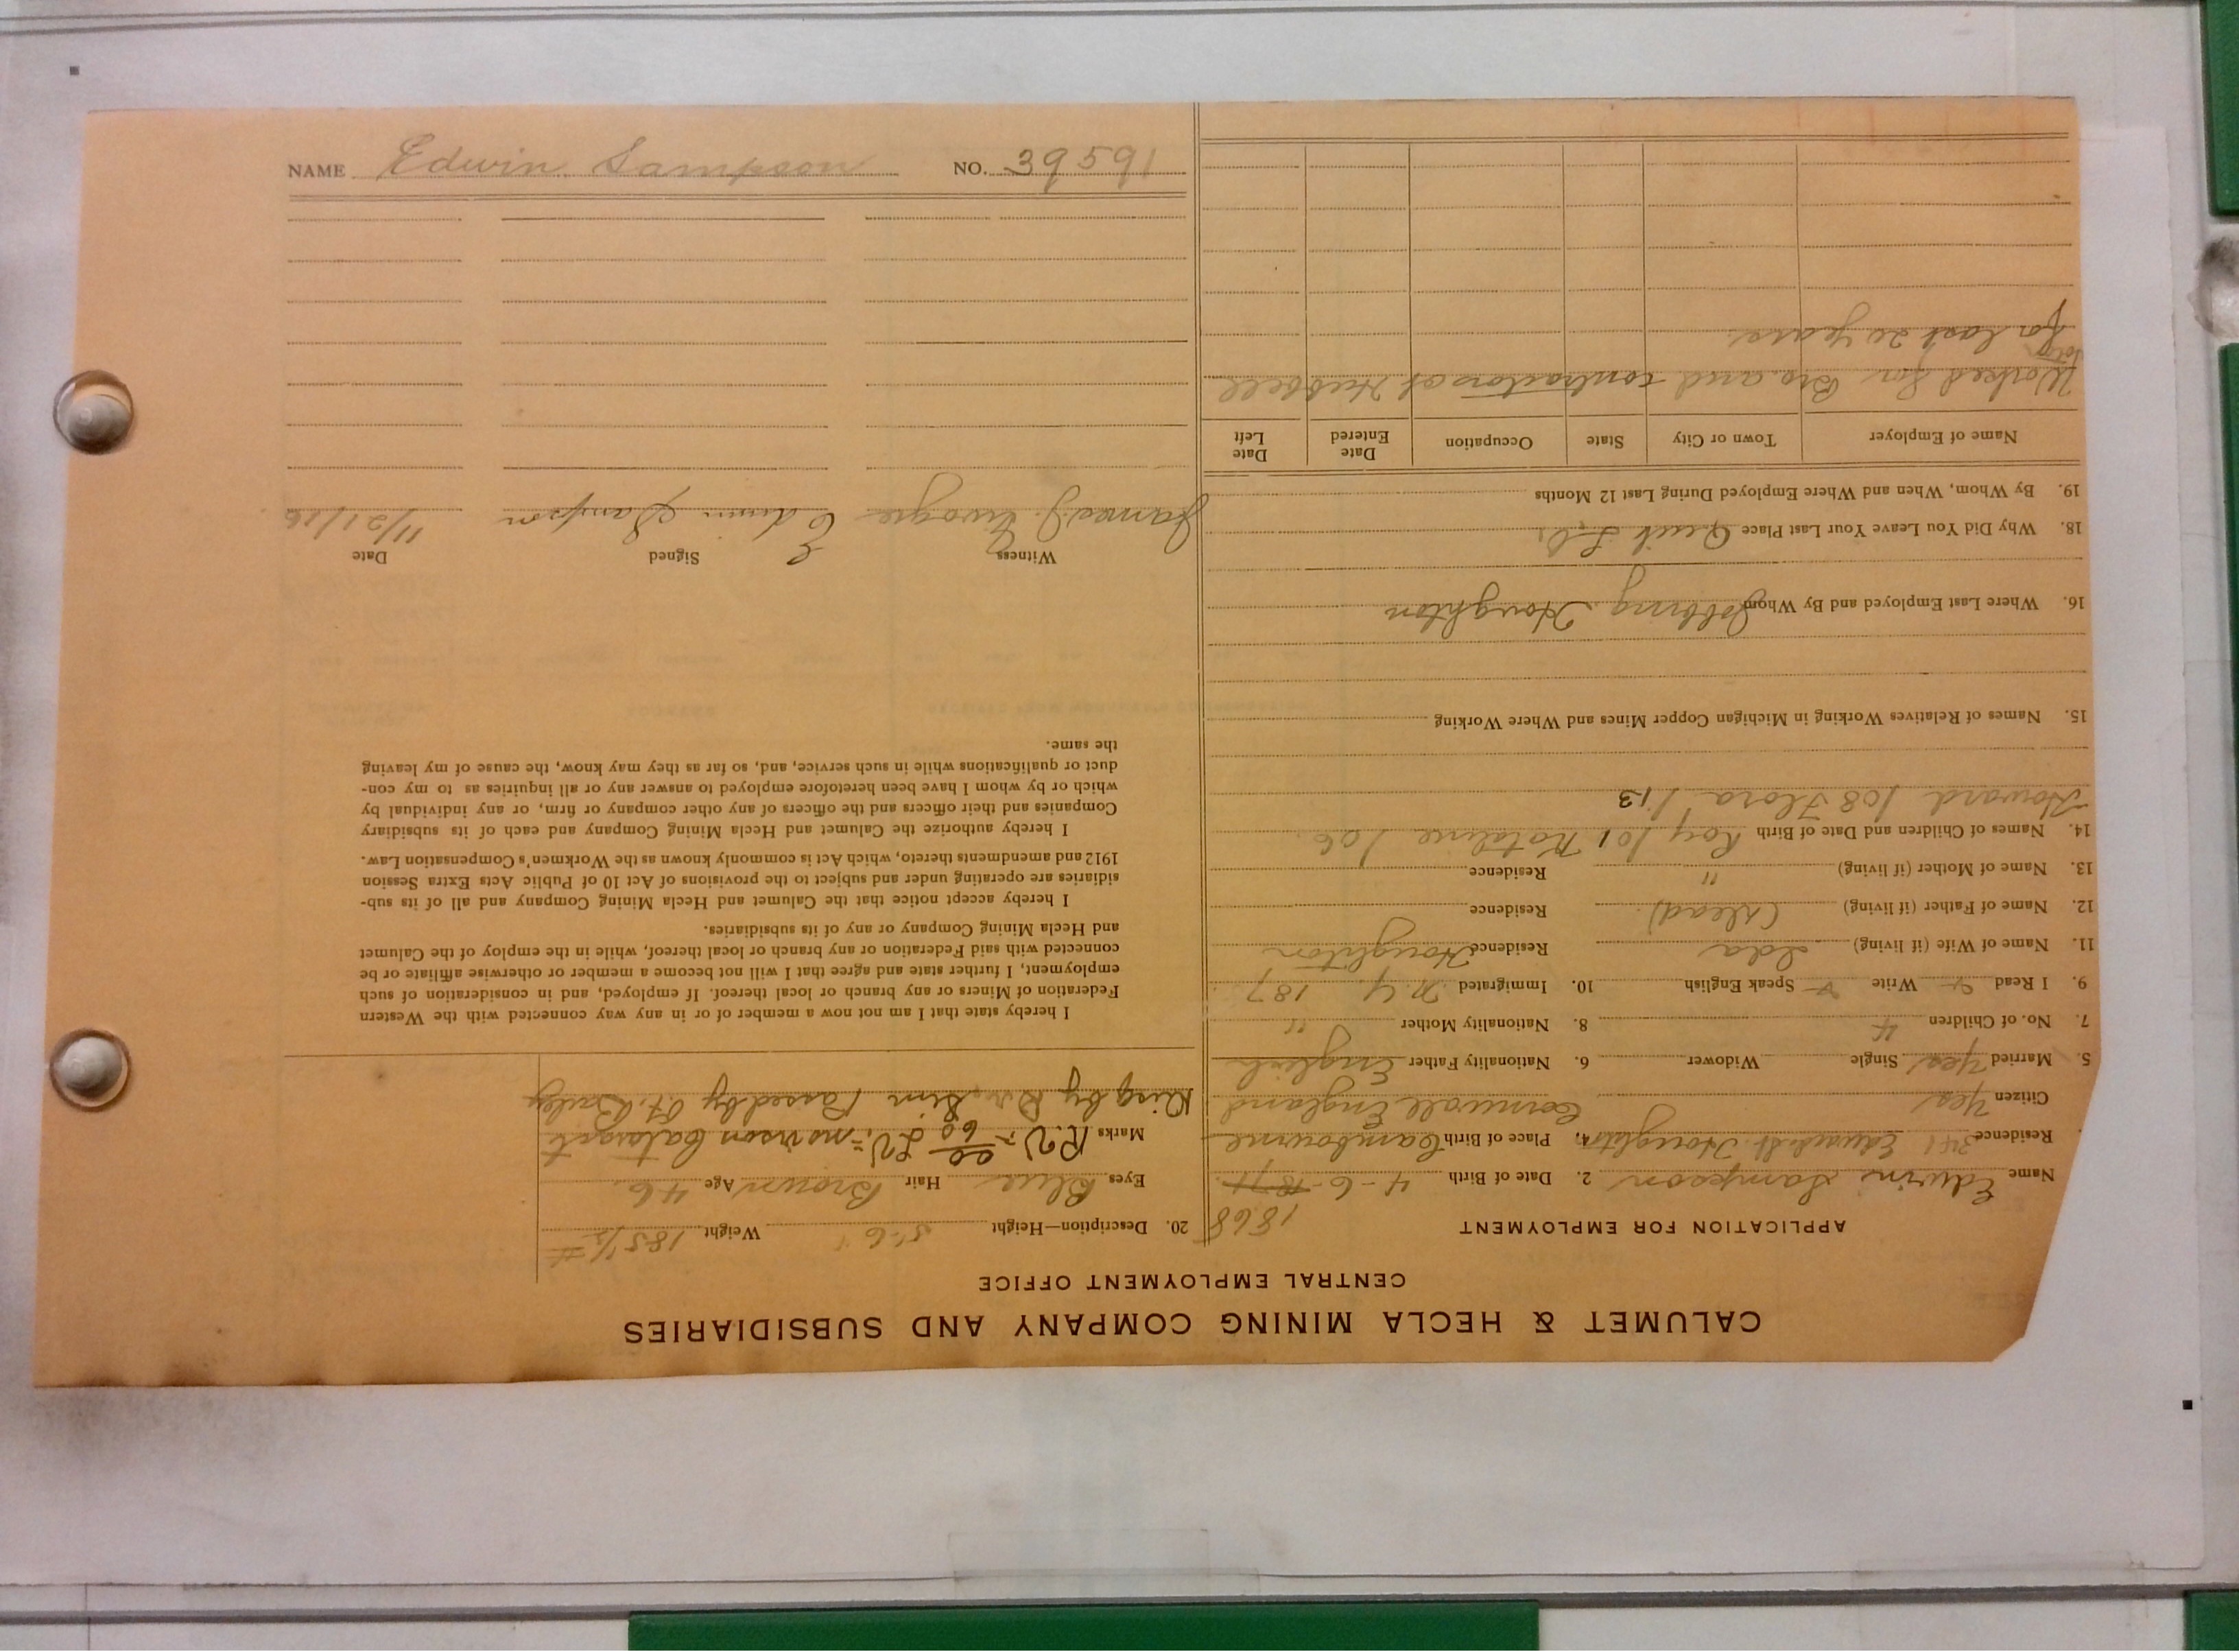 NAME Edwin Sampson NO. 39591
CALUMET & HECLA MINING COMPANY AND SUBSIDIARIES
CENTRAL EMPLOYMENT OFFICE
APPLICATION FOR EMPLOYMENT
1868
Name Edwin Sampson 2. Date of Birth 4-6-1871
Residence 341 Edwards St. Houghton 4. Place of Birth Cambourne
Citizen Yes Cornwall England
5. Married Yes Single Widower 6. Nationality Father English
7. No. of Children 4 8. Nationality Mother "
9. I Read Write Speak English 10. Immigrated N.Y. 187
11. Name of Wife (if living) Ida Residence Houghton
12. Name of Father (if living) (Dead) Residence
13. Name of Mother (if living) " Residence
14. Names of Children and Date of Birth Roy 101 106
Howard 108 Flora 113
15. Names of Relatives Working in Michigan Copper Mines and Where Working
16. Where Last Employed and By Whom Jobbing Houghton
18. Why Did You Leave Your Last Place Quit
19. By Whom, When and Where Employed During Last 12 Months
Name of Employer Town or City State Occupation Date Entered Date Left
Worked for Bro. and contractors at Hubbell
for last 20 years
20. Description—Height 5'-6" Weight 185 1/2 #
Eyes Blue Hair Brown Age 46
Marks R.V = 20/60 L.V = no vision Cataract
Passed by
I hereby state that I am not now a member of or in any way connected with the Western
Federation of Miners or any branch or local thereof. If employed, and in consideration of such
employment, I further state and agree that I will not become a member or otherwise affiliate or be
connected with said Federation or any branch or local thereof, while in the employ of the Calumet
and Hecla Mining Company or any of its subsidiaries.
I hereby accept notice that the Calumet and Hecla Mining Company and all of its sub-
sidiaries are operating under and subject to the provisions of Act 10 of Public Acts Extra Session
1912 and amendments thereto, which Act is commonly known as the Workmen's Compensation Law.
I hereby authorize the Calumet and Hecla Mining Company and each of its subsidiary
Companies and their officers and the officers of any other company or firm, or any individual by
which or by whom I have been heretofore employed to answer any or all inquiries as to my con-
duct or qualifications while in such service, and, so far as they may know, the cause of my leaving
the same.
Witness Signed Date
James J. Edwin Sampson 11/21/16